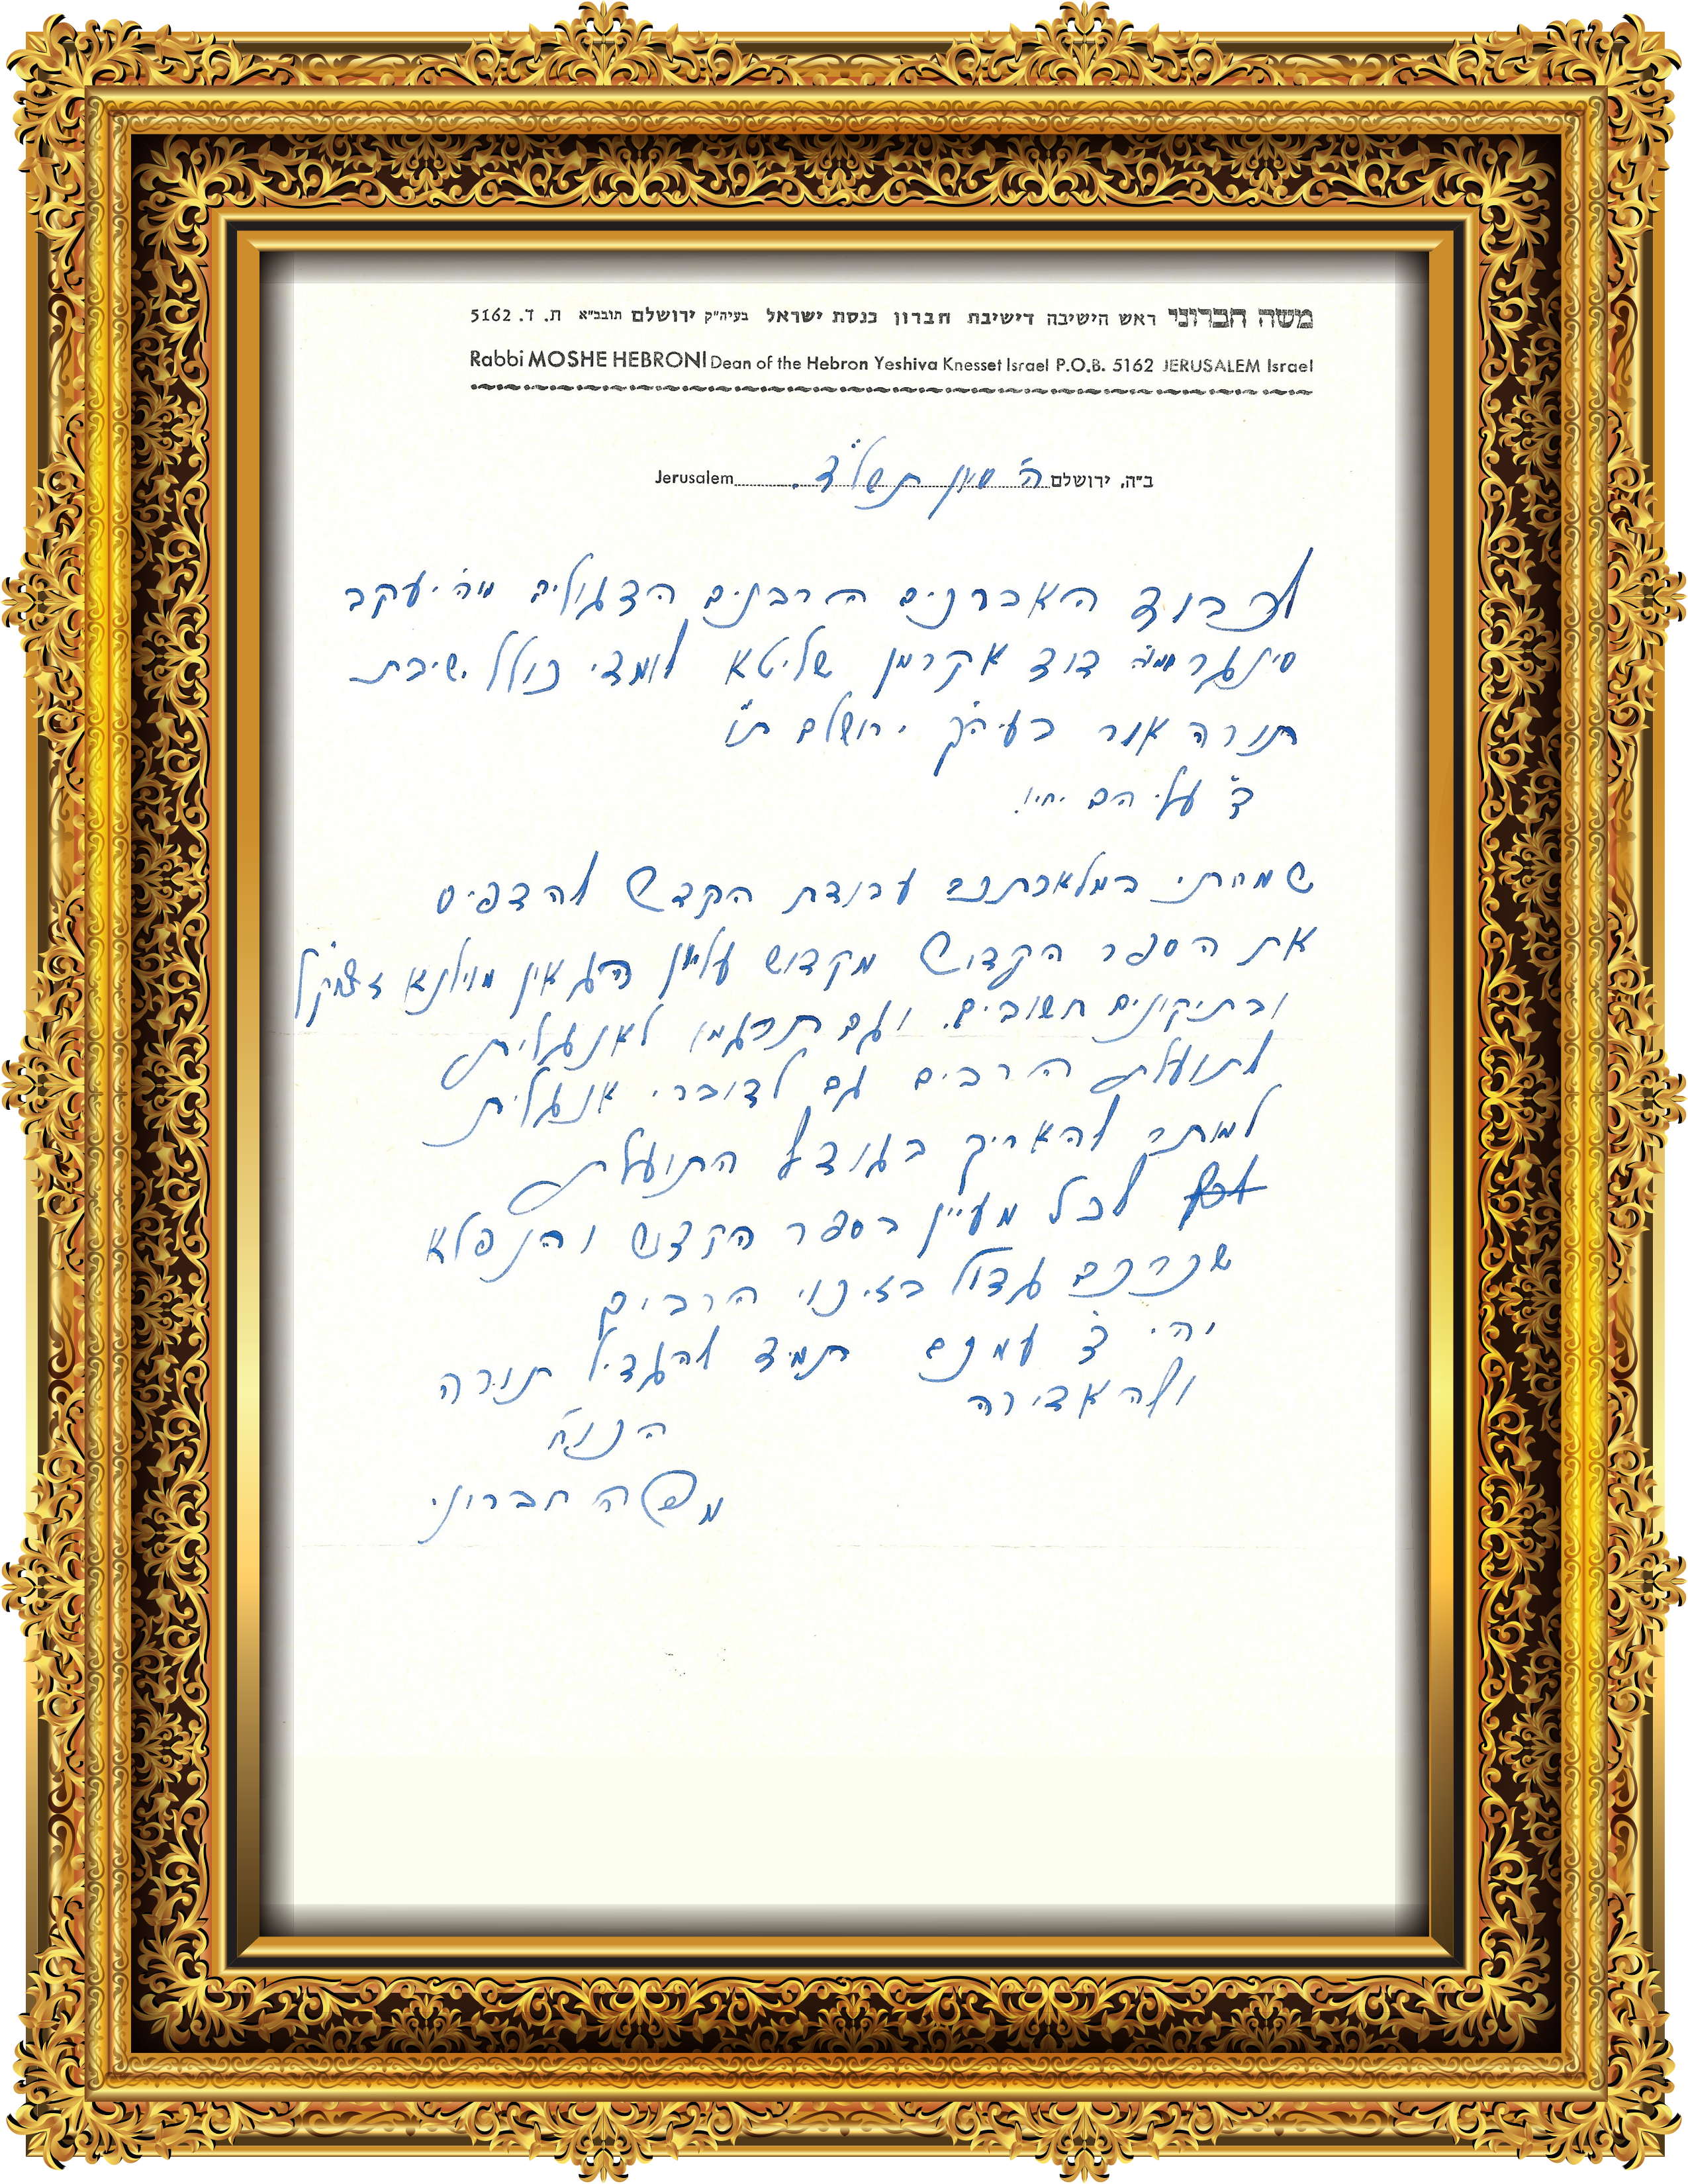 משה חברוני ראש הישיבה דישיבת חברון כנסת ישראל בעיה"ק ירושלם תובב"א ת. ד. 5162
Rabbi MOSHE HEBRONI Dean of the Hebron Yeshiva Knesset Israel P.O.B. 5162 JERUSALEM Israel
ב"ה, ירושלם ה' סיון תשל"ד. Jerusalem
לכבוד האברכים הרבנים הדגולים מוה' יעקב
סינגר ומוה' דוד אקרמן שליטא לומדי כולל ישיבת
תורה אור בעיה"ק ירושלם ת"ו
ד' עליהם יחיו.
שמחתי במלאכתכם עבודת הקדש להדפיס
את הספר הקדוש מקדוש עליון הגאון מוילנא זצוק"ל
ובתיקונים חשובים. וגם תרגמו לאנגלית
לתועלת הרבים גם לדוברי אנגלית
למותר להאריך בגודל התועלת
לכל מעיין בספר הקדוש והנפלא
שכרכם גדול בזיכוי הרבים
יהי ד' עמכם תמיד להגדיל תורה
ולהאדירה
הכו"ח
משה חברוני